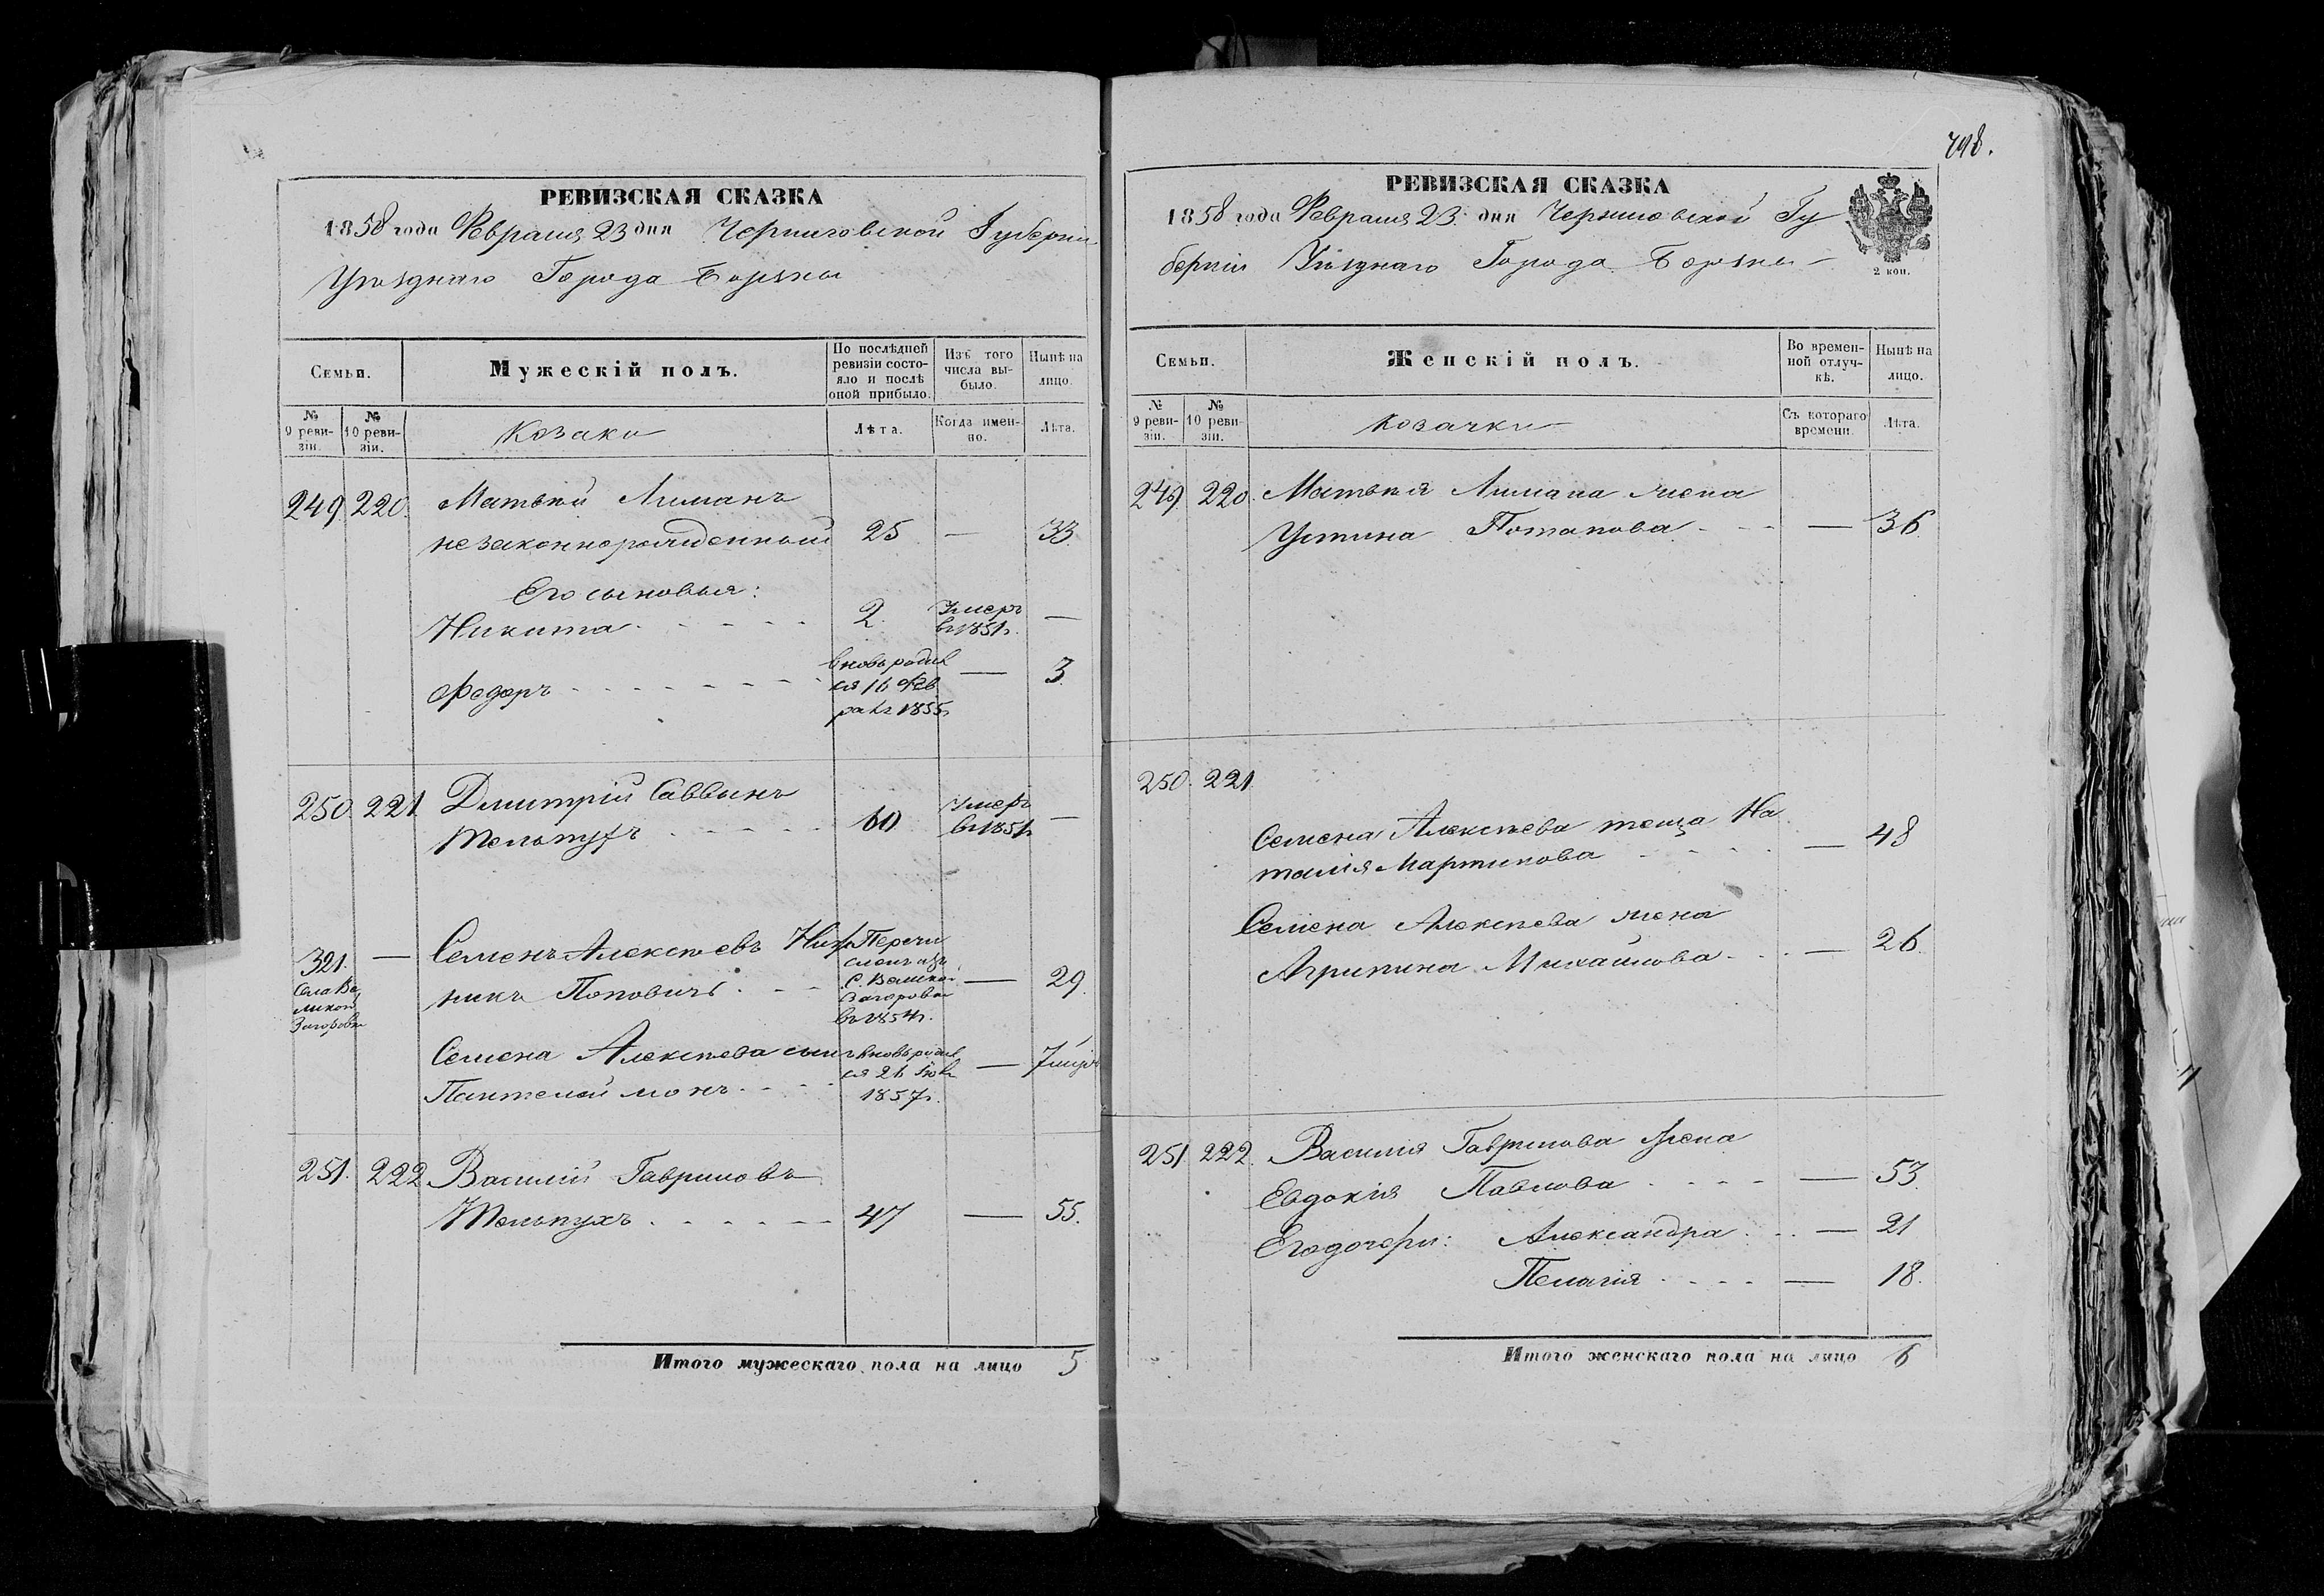 РЕВИЗСКАЯ СКАЗКА
1858 года Февраля 23 дня Черниговской Губерніи
Уѣзднаго Города Борзны
Семьи.
Мужескій полъ.
По послѣдней ревизіи состояло и послѣ оной прибыло.
Изъ того числа выбыло.
Нынѣ на лицо.
№ 9 ревизіи.
№ 10 ревизіи.
Козаки
Лѣта.
Когда именно.
Лѣта.
249. 220. Матвѣй Лиманъ
незаконнорожденный 25 — 33
Его сыновья:
Никита 2. Умеръ
въ 1851г. —
вновь родил
Федоръ ся 16 Фев — 3.
ра 1855г.
250. 221 Дмитрій Саввинъ
Тельпухъ 60 Умеръ
въ 1851г. —
321. — Семенъ Алексѣевъ Перечи
Села Ве
ликой
Загоровки
никъ Поповичъ
сленъ изъ
С. Великой
Загоровки
въ 1854г.
— 29.
Семена Алексѣева сынъ вновь родил
Пантелеймонъ ся 26
1857г.
— 7 мѣся
251. 222 Василій Гавриловъ
Тельпухъ 47 — 55.
Итого мужескаго пола на лицо 5
798.
РЕВИЗСКАЯ СКАЗКА
1858 года Февраля 23 дня Черниговской Гу
берніи Уѣзднаго Города Борзны
2 коп.
Семьи.
Женскій полъ.
Во временной отлучкѣ.
Нынѣ на лицо.
№ 9 ревизіи.
№ 10 ревизіи.
Козачки
Съ котораго времени.
Лѣта.
249. 220. Матвѣя Лимана жена
Устина Потапова — 36.
250. 221.
Семена Алексѣева теща На
талія Мартинова — 48
Семена Алексѣева жена
Агрипина Михайлова — 26.
251. 222. Василія Гаврилова жена
Евдокія Павлова — 53.
Его дочери: Александра — 21
Пелагія — 18.
Итого женскаго пола на лицо 6